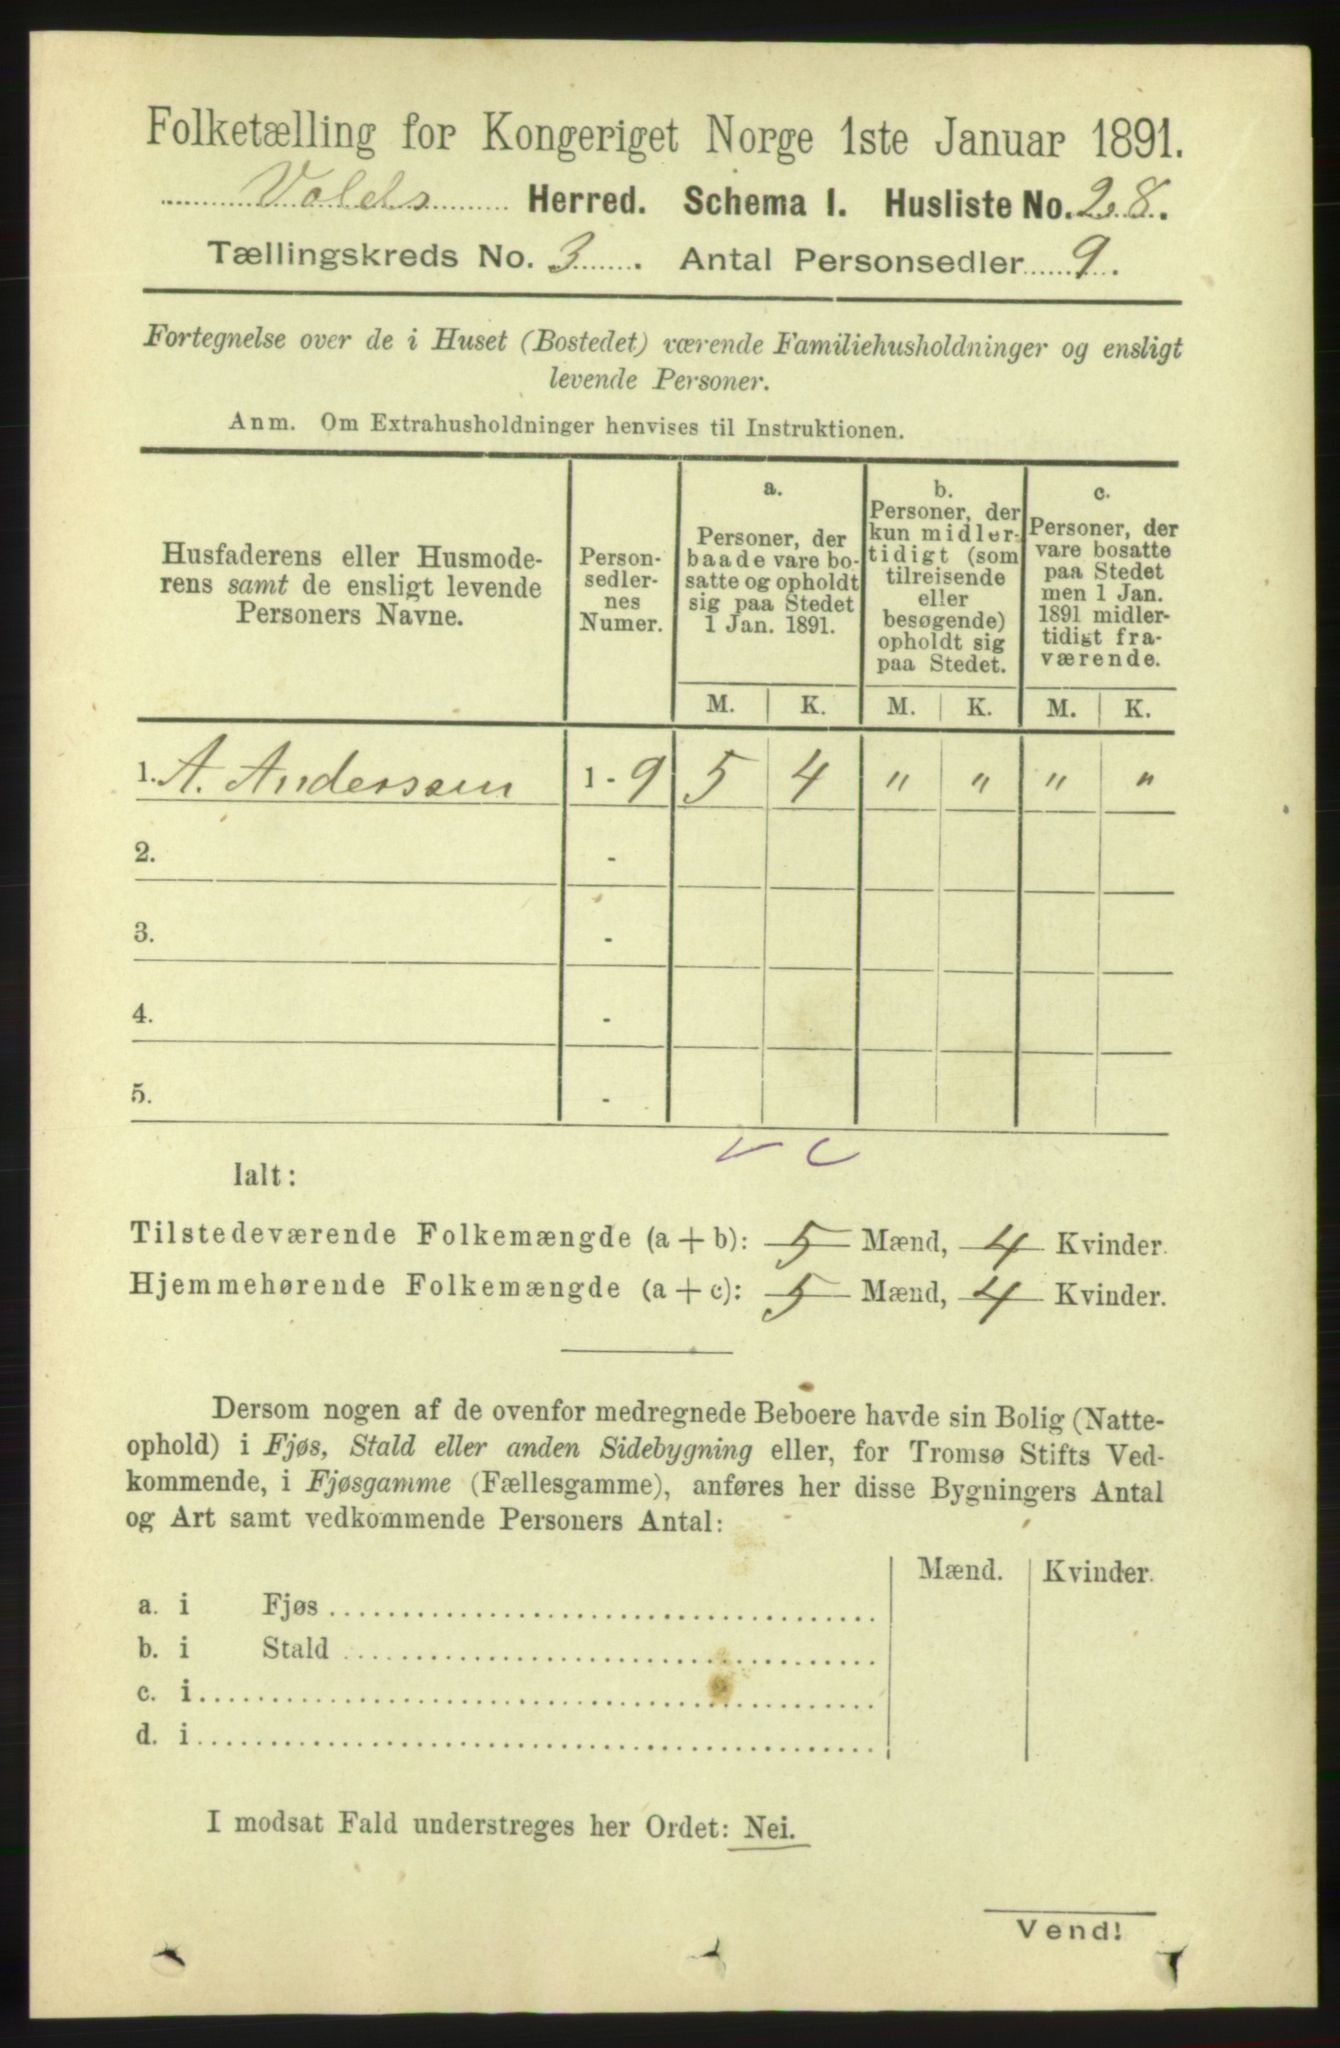 Folketælling for Kongeriget Norge 1ste Januar 1891.
Volds Herred. Schema I. Husliste No. 28.
Tællingskreds No. 3. Antal Personsedler 9.
Fortegnelse over de i Huset (Bostedet) værende Familiehusholdninger og ensligt
levende Personer.
Anm. Om Extrahusholdninger henvises til Instruktionen.
Husfaderens eller Husmode-
rens samt de ensligt levende
Personers Navne.
Person-
sedler-
nes
Numer.
a.
Personer, der
baade vare bo-
satte og opholdt
sig paa Stedet
1 Jan. 1891.
b.
Personer, der
kun midler-
tidigt (som
tilreisende
eller
besøgende)
opholdt sig
paa Stedet.
c.
Personer, der
vare bosatte
paa Stedet
men 1 Jan.
1891 midler-
tidigt fra-
værende.
M. K. M. K. M. K.
1. A. Anderssen 1 - 9 5 4 " " " "
2. -
3. -
4. -
5. -
Ialt:
Tilstedeværende Folkemængde (a + b): 5 Mænd, 4 Kvinder.
Hjemmehørende Folkemængde (a + c): 5 Mænd, 4 Kvinder.
Dersom nogen af de ovenfor medregnede Beboere havde sin Bolig (Natte-
ophold) i Fjøs, Stald eller anden Sidebygning eller, for Tromsø Stifts Ved-
kommende, i Fjøsgamme (Fællesgamme), anføres her disse Bygningers Antal
og Art samt vedkommende Personers Antal:
Mænd. Kvinder.
a. i Fjøs
b. i Stald
c. i
d. i
I modsat Fald understreges her Ordet: Nei.
Vend!